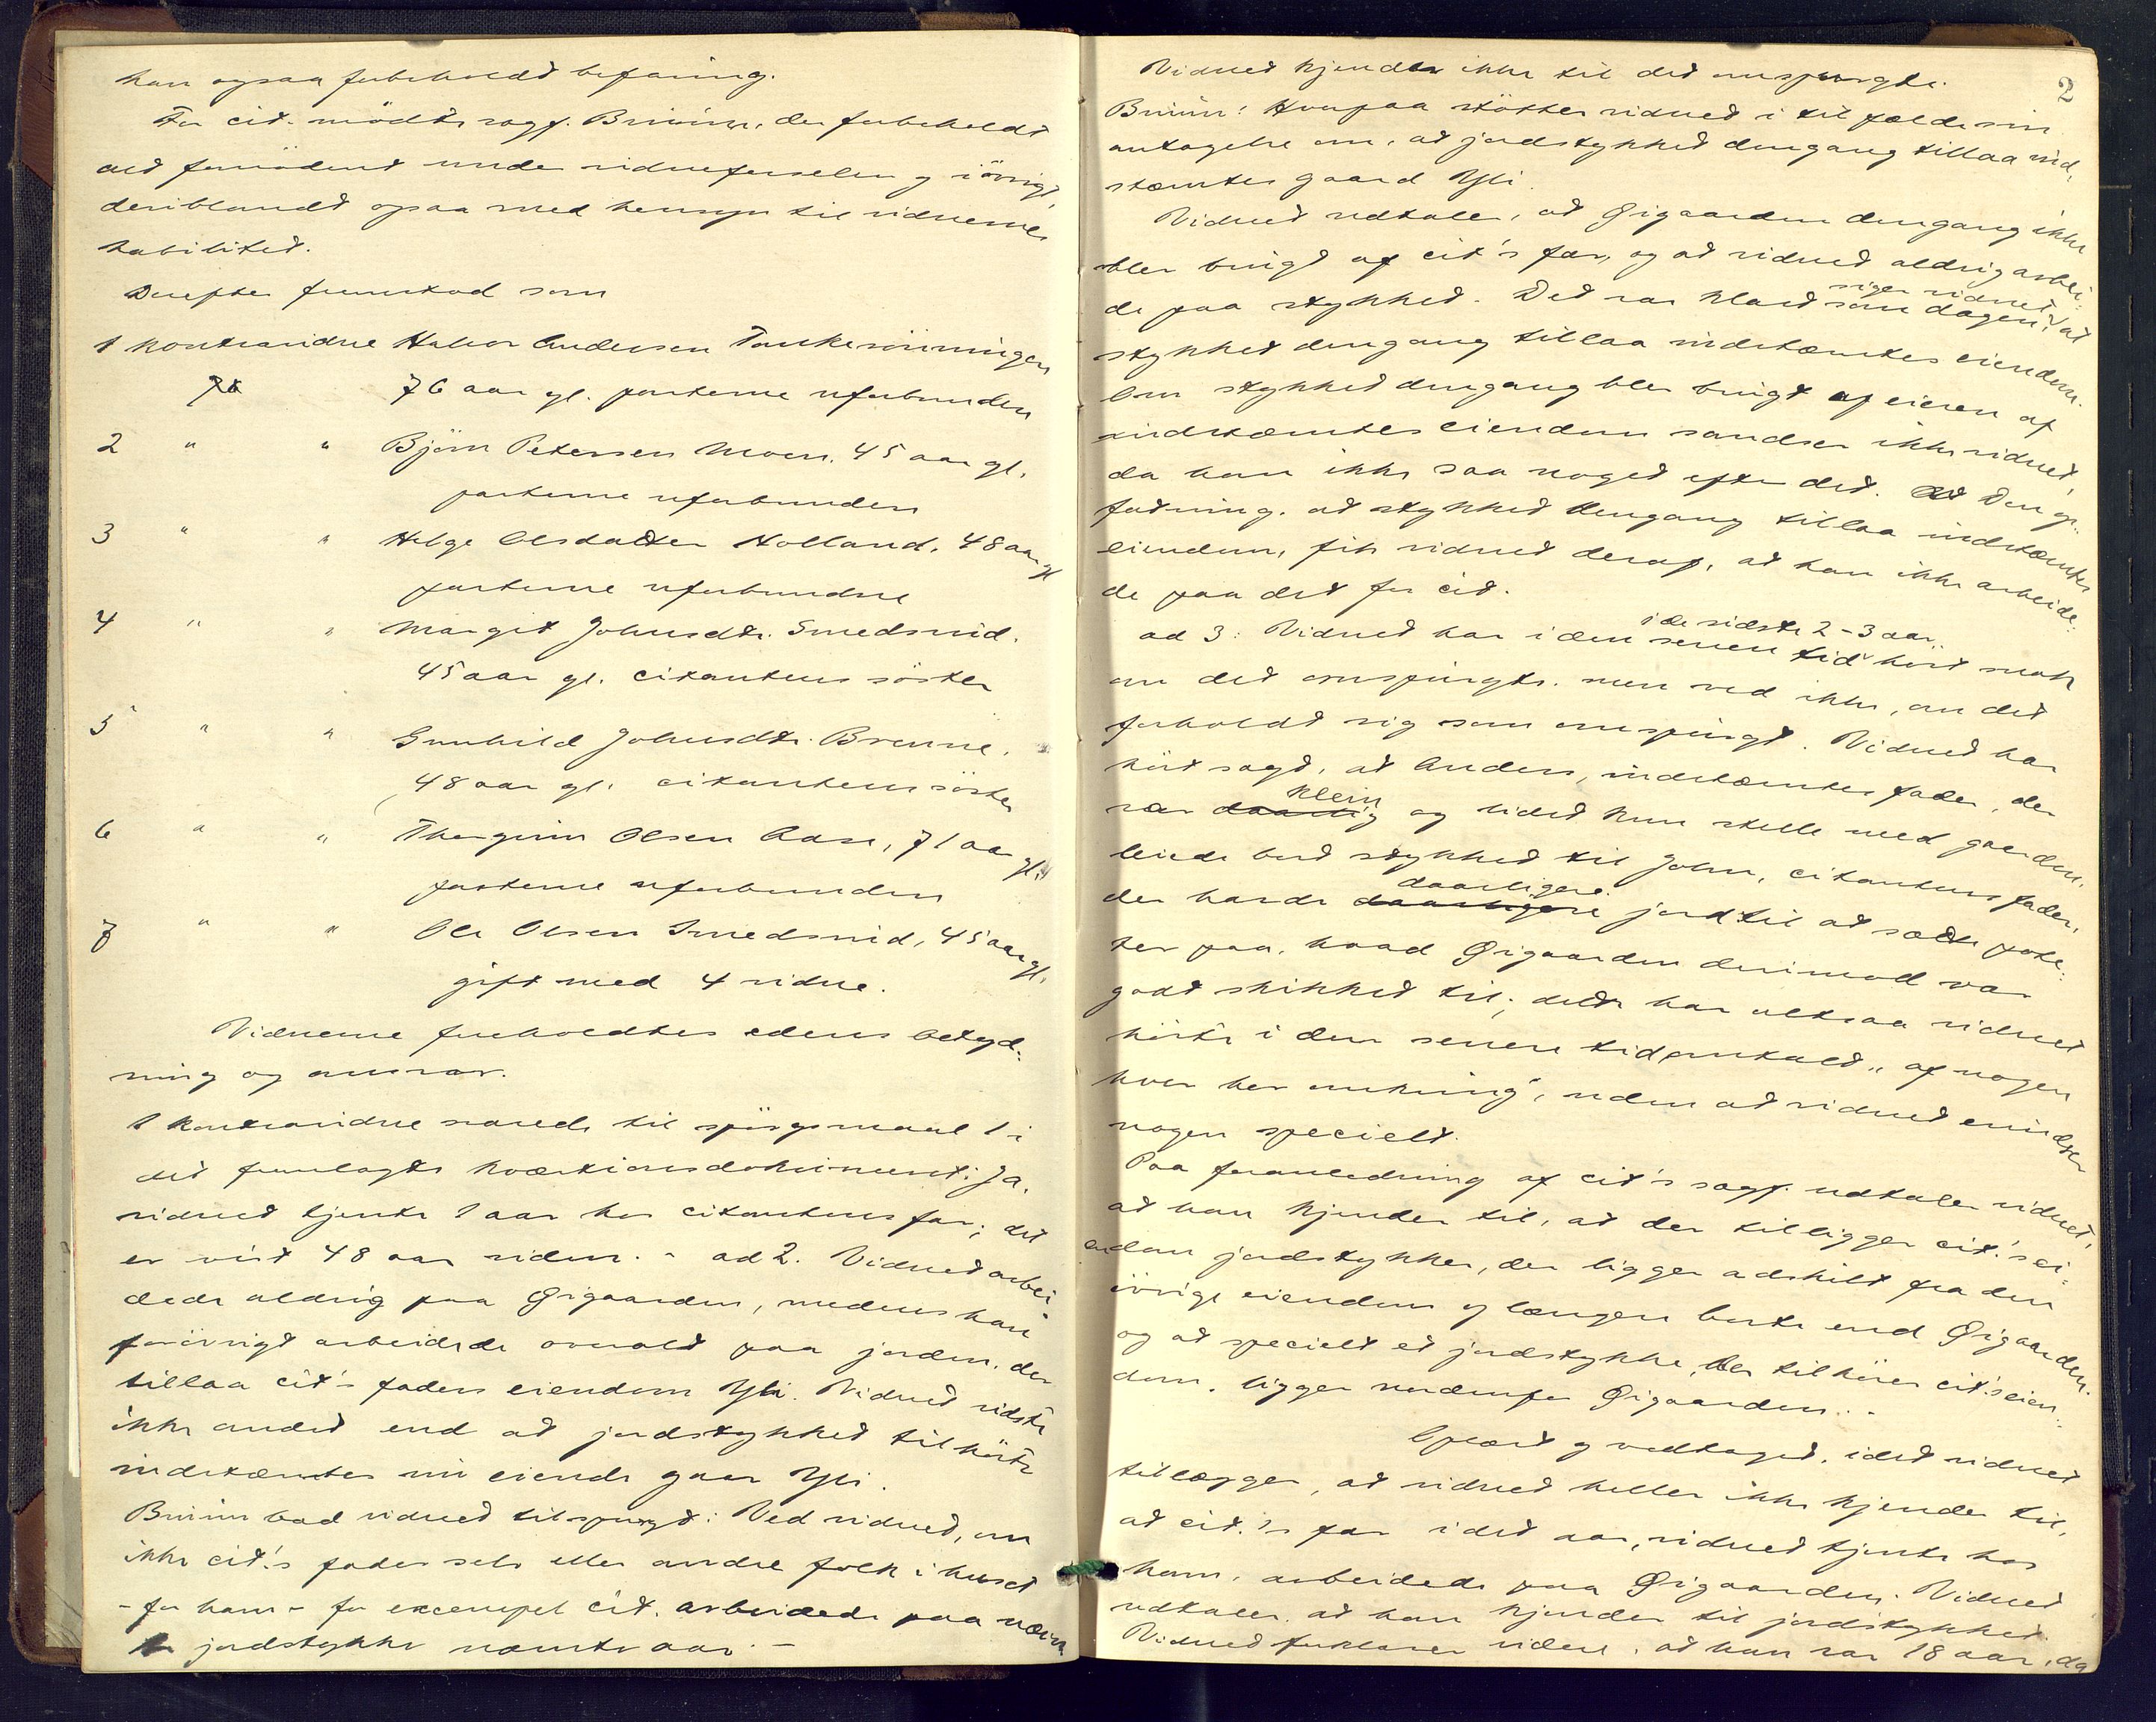 han ogsaa forbeholdt befaring.
For cit. mödte sagf. Bruun, der forbeholdt
alt fornödent under vidneførselen og iövrigt,
deriblandt ogsaa med hensyn til vidnernes
habilitet.
Derefter fremstod som
1 kontravidne Halvor Andersen
76 aar gl. parterne uforbunden
2 " " Björn Petersen Moen, 45 aar gl.
parterne uforbunden
3 " " Helge Olsdatter Holland, 48 aar gl
parterne uforbundne
4 " " Margit Johnsdtr. Smedsrud.
45 aar gl. citantens söster
5 " " Gunhild Johnsdtr. Brenne,
48 aar gl. citantens söster
6 " " Thorgrim Olsen Aase, 71 aar gl.
parterne uforbunden
7 " " Ole Olsen Smedsrud, 45 aar gl.
gift med 4 vidne.
Vidnerne foreholdtes edens betyd-
ning og ansvar.
1 kontravidne svarede til spörgsmaal 1 i
det fremlagte kvæstionsdokument: Ja,
vidnet tjente 1 aar hos citantens far; det
er vist 48 aar siden. - ad 2. Vidnet arbei-
dede aldrig paa Øigaarden, medens han
forövrigt arbeidede overalt paa jorden, der
tillaa cit's faders eiendom Yli. Vidnet vidste
ikke andet end at jordstykket tilhörte
indstæmtes nu eiende gaar Yli.
Bruun bad vidnet tilspurgt: Ved vidnet, om
ikke cit.'s fader selv eller andre folk i huset
- for ham - for exempel cit. arbeidede paa nævn
te jordstykke nævnte aar. -
2
Vidnet kjender ikke til det omspurgte.
Bruun: Hvorpaa stötter vidnet i tilfælde sin
antagelse om, at jordstykket dengang tillaa ind-
stæmtes gaard Yli.
Vidnet udtaler, at Øigaarden dengang ikke
blev brugt af cit's far, og at vidnet aldrig arbei-
siger vidnet
de paa stykket. Det var klart som dagen, at
stykket dengang tillaa indstæmtes eiendom.
Om stykket dengang blev brugt af eieren af
indstæmtes eiendom sandser ikke vidnet,
da han ikke saa noget efter det. Den op-
fatning, at stykket dengang tillaa indstæmtes
eiendom, fik vidnet deraf, at han ikke arbeide-
de paa det for cit.
i de sidste 2-3 aar
ad 3: Vidnet har i den senere tid hört snak
om det omspurgte, men ved ikke, om det
forholdt sig som omspurgt. Vidnet har
hört sagt, at Anders, indstæmtes fader, der
klein
var daarlig og lidet kunne stelle med gaarden,
leiede bort stykket til John, citantens fader,
daarligere
der havde daarligere jord til at sætte pote-
ter paa, hvad Øigaarden derimod var
godt skikket til; dette har altsaa vidnet
hörte i den senere tid omtalt „ af nogen
hver her omkring", uden at vidnet erindrer
nogen specielt.
Paa foranledning af cit's sagf. udtaler vidnet,
at han kjender til, at der tilligger cit.'s ei-
endom jordstykker, der ligger adskilt fra den
övrige eiendom og længere borte end Øigaarden,
og at specielt et jordstykke, der tilhörer cit.'s eien-
dom, ligger nordenfor Øigaarden. -
Oplæst og vedtaget, idet vidnet
tillægger, at vidnet heller ikke kjender til,
at cit.'s far i det aar, vidnet tjente hos
ham, arbeidede paa Øigaarden. Vidnet
udtaler, at han kjender til jordstykket.
Vidnet forklarer videre, at han var 18 aar, da